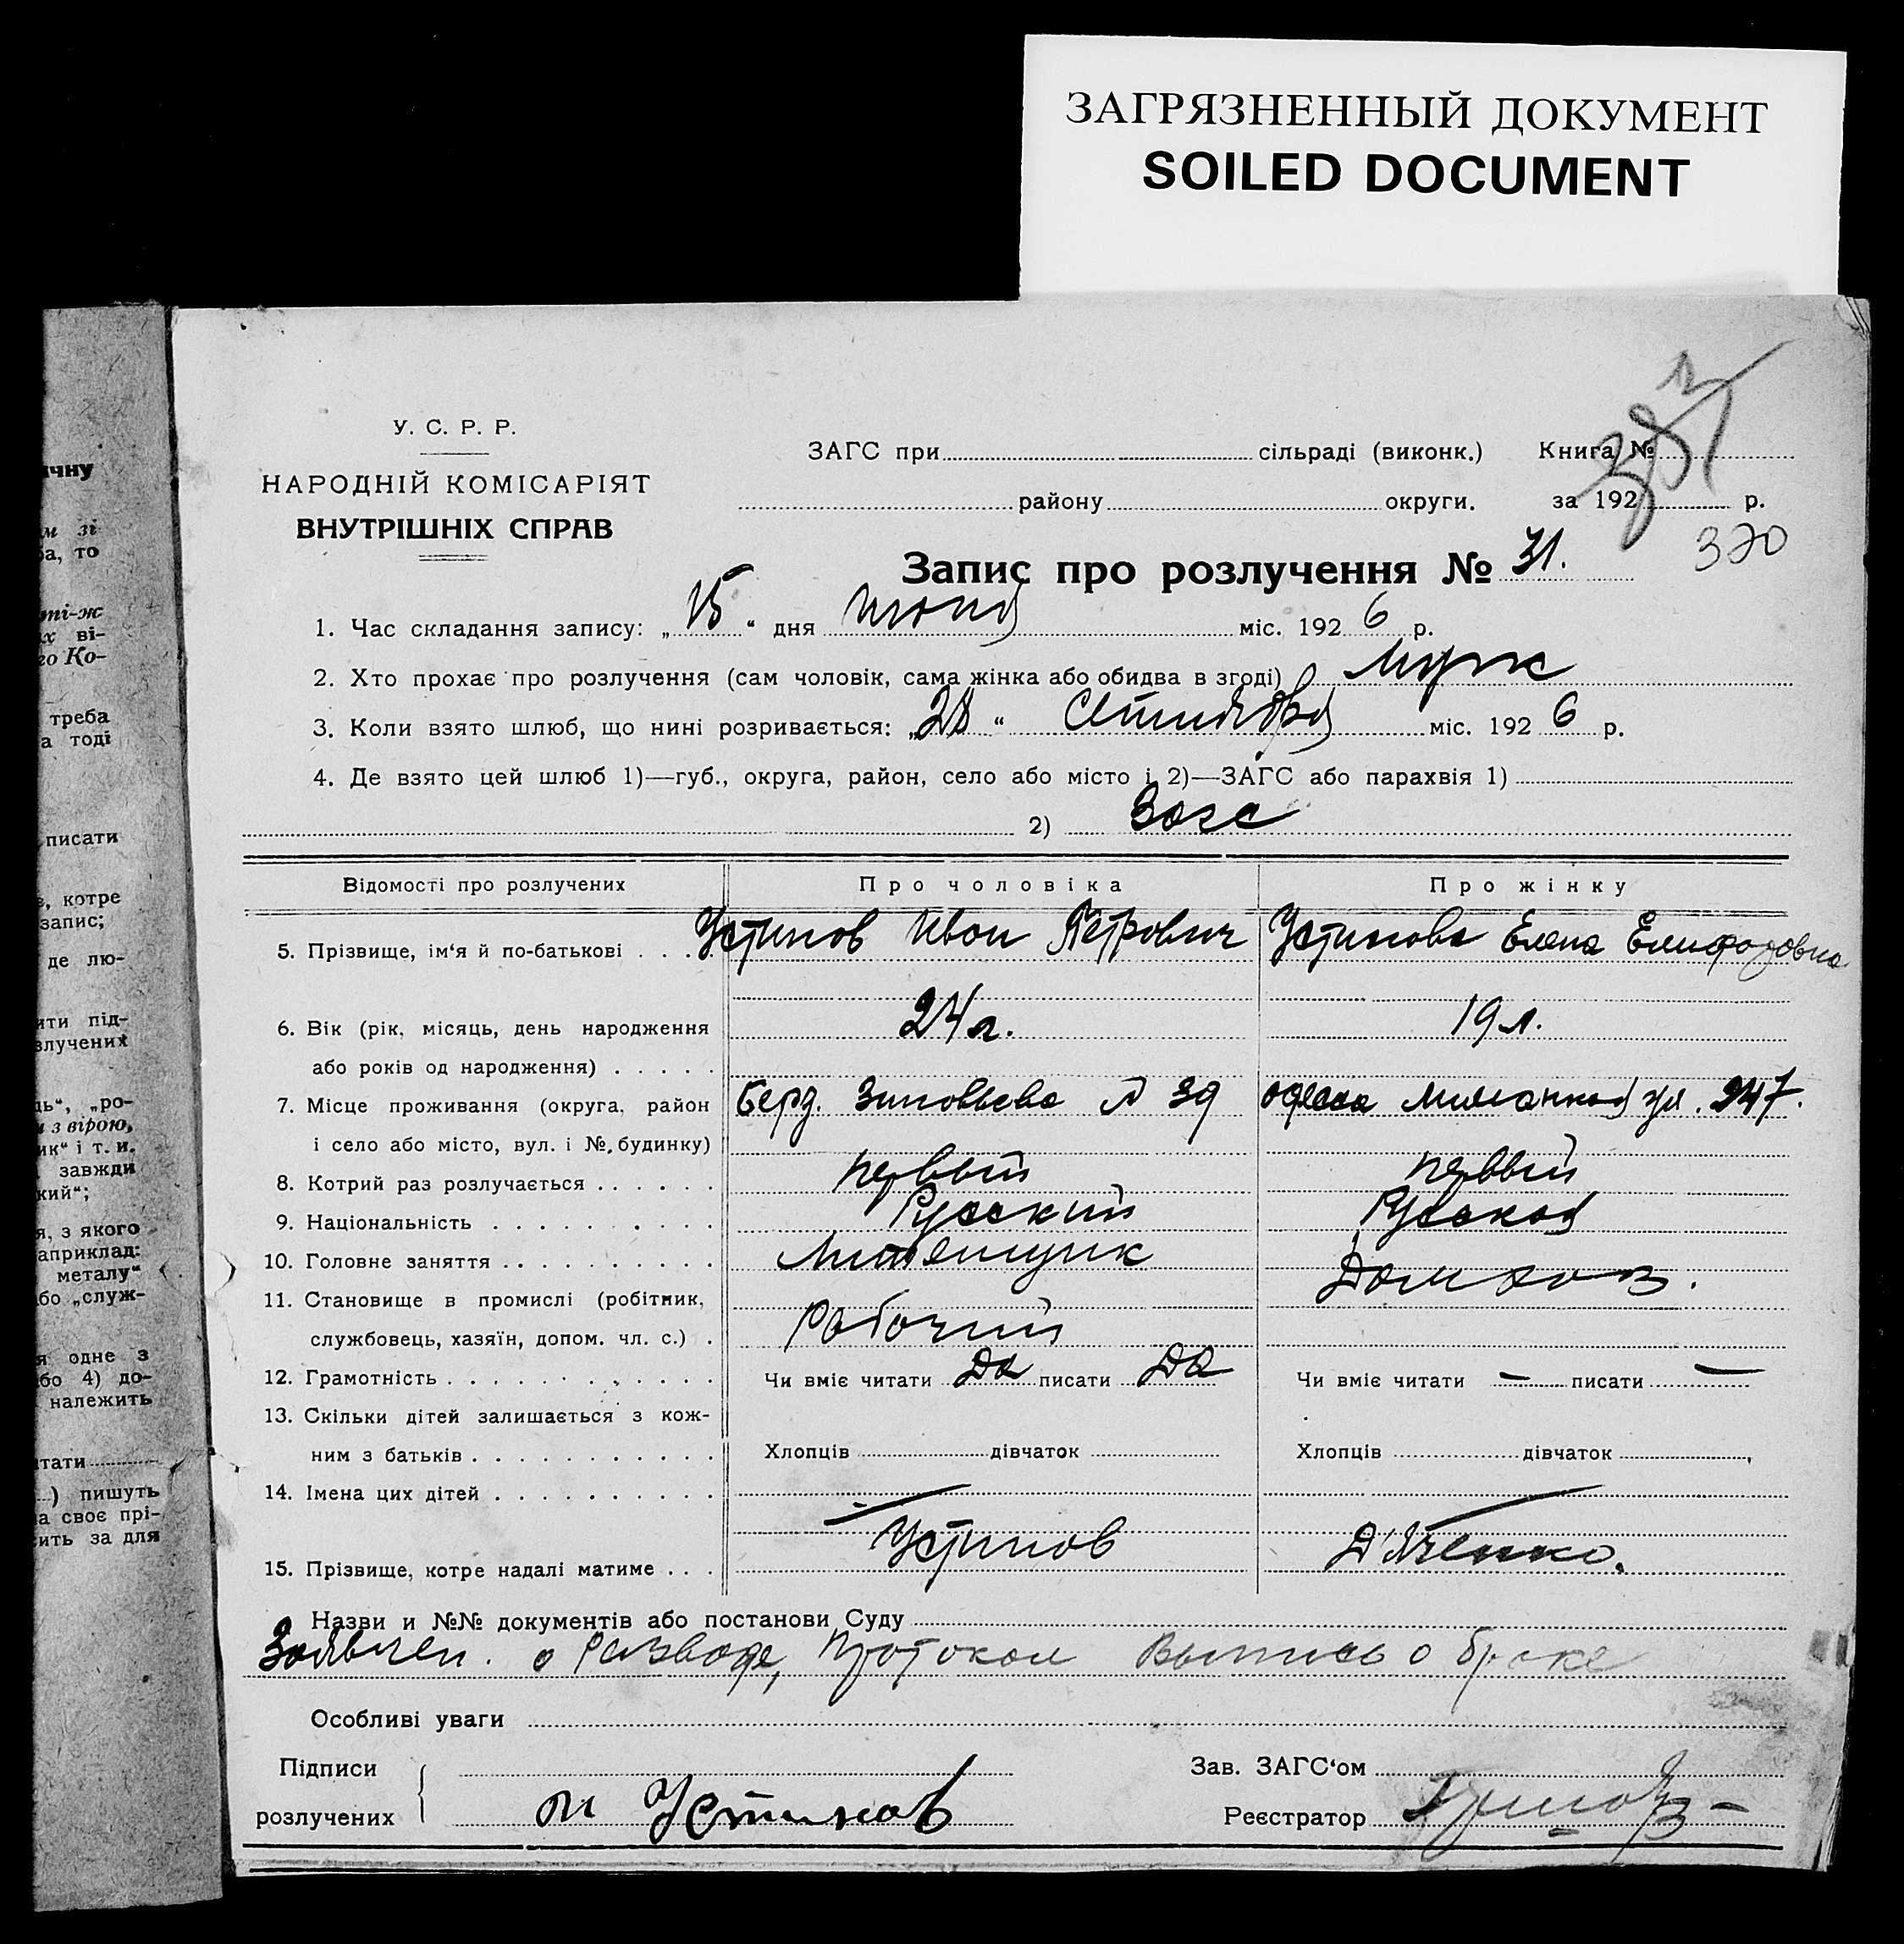 ЗАГРЯЗНЕННЫЙ ДОКУМЕНТ
SOILED DOCUMENT
У. С. Р. Р.
НАРОДНІЙ КОМІСАРІЯТ
ВНУТРІШНІХ СПРАВ
ЗАГС при сільраді (виконк.) Книга №
району округи. за 192 р.
320
Запис про розлучення № 31.
1. Час складання запису: „15“ дня июня міс. 1926 р.
2. Хто прохає про розлучення (сам чоловік, сама жінка або обидва в згоді) муж
3. Коли взято шлюб, що нині розривається: „28“ Сентября міс. 1926 р.
4. Де взято цей шлюб 1)—губ., округа, район, село або місто і 2)—ЗАГС або парахвія 1)
2) Загс
Відомості про розлучених Про чоловіка Про жінку
5. Прізвище, ім‘я й по-батькові Устинов Иван Петрович Устинова Елена
6. Вік (рік, місяць, день народження 24 г. 19 л.
або років од народження)
7. Місце проживання (округа, район Берд. Зиновьева № 39 одесса ул. 247.
і село або місто, вул. і №, будинку)
8. Котрий раз розлучається первый первый
9. Національність Русский Русская
10. Головне заняття Литейщик Домохоз.
11. Становище в промислі (робітник,
службовець, хазяїн, допом. чл. с.) Рабочий
12. Грамотність Чи вміє читати Да писати Да Чи вміє читати — писати —
13. Скільки дітей залишається з кож-
ним з батьків Хлопців дівчаток Хлопців дівчаток
14. Імена цих дітей
15. Прізвище, котре надалі матиме Устинов Дяченко.
Назви и №№ документів або постанови Суду
Заявлен. о разводе, Протокол Выпись о браке
Особливі уваги
Підписи Зав. ЗАГС‘ом
розлучених Устинов Реєстратор
ичну
м зі
ба, то
ті-ж
их ві-
го Ко-
треба
а тоді
писати
в, котре
запис;
де лю-
ити під-
злучених
дь“, „ро-
и з вірою,
ик“ і т. и.
завжди
кий“;
я, з якого
априклад:
металу“
бо „служ-
я одне з
бо 4) до-
належить
тати
) пишуть
а своє прі-
сить за для